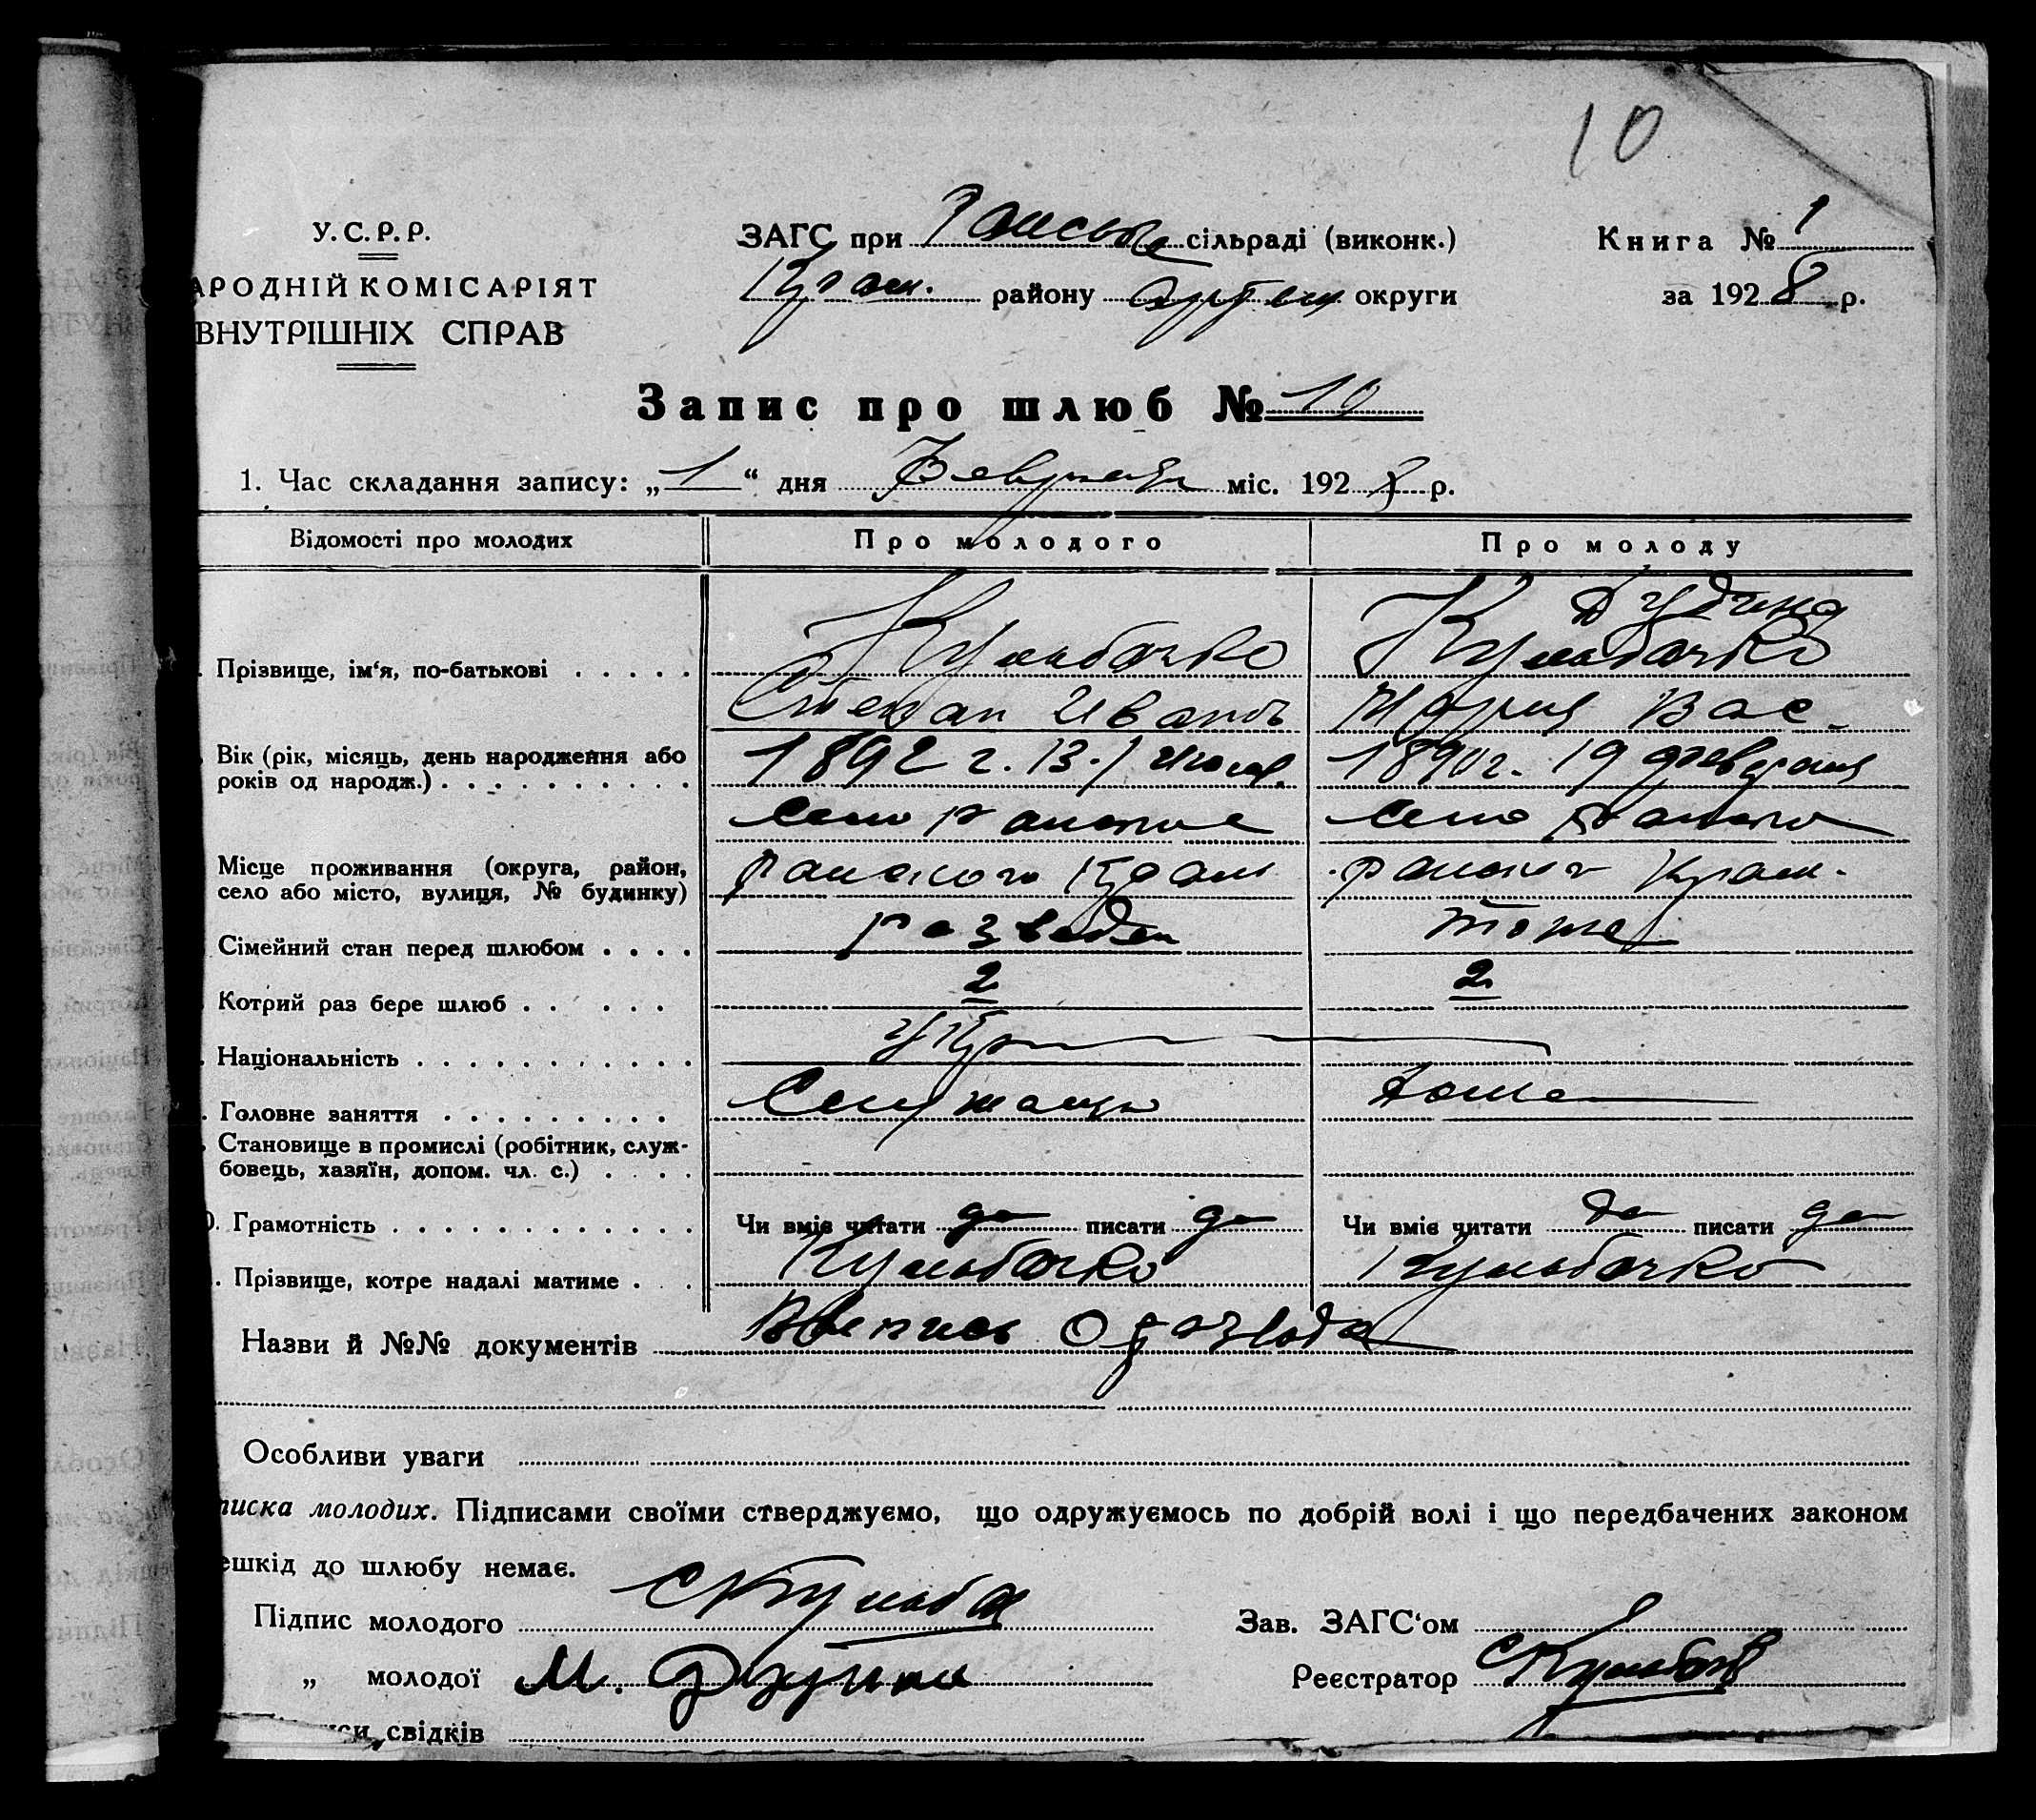 10
У.С.Р.Р.
АРОДНІЙ КОМІСАРІЯТ
ВНУТРІШНІХ СПРАВ
ЗАГС при Райской сільраді (виконк.)
Крам. району Артем округи
Книга № 1
за 1928 р.
Запис про шлюб № 10
1. Час складання запису: „1“ дня Февраля міс. 1928 р.
Відомості про молодих Про молодого Про молоду
Дудина
Прізвище, ім‘я, по-батькові . . . . . Кульбачко Кульбачко
Степан Иванов Мария Вас.
Вік (рік, місяць, день народження або 1892 г. 13 1890 г. 19 февраля
років од народж.) . . . . . . . . . .
Село Село
Місце проживання (округа, район, Крам Крам.
село або місто, вулиця, № будинку)
Сімейний стан перед шлюбом . . . . разведен тоже
Котрий раз бере шлюб . . . . . 2 2
Національність . . . . . . . . . . . Укр
Головне заняття . . . . . . . . . Служащий Дома
Становище в промислі (робітник, служ-
бовець, хазяїн, допом. чл. с.) . . . .
0. Грамотність . . . . . . . . . . . . Чи вміє читати да писати да Чи вміє читати да писати да
. Прізвище, котре надалі матиме . . . Кульбачко Кульбачко
Назви й №№ документів о развода
Особливи уваги
писка молодих. Підписами своїми стверджуємо, що одружуємось по добрій волі і що передбачених законом
ешкід до шлюбу немає.
Підпис молодого СКульба
Зав. ЗАГС‘ом
„ молодої М.
Реєстратор СКульбач
си свідків